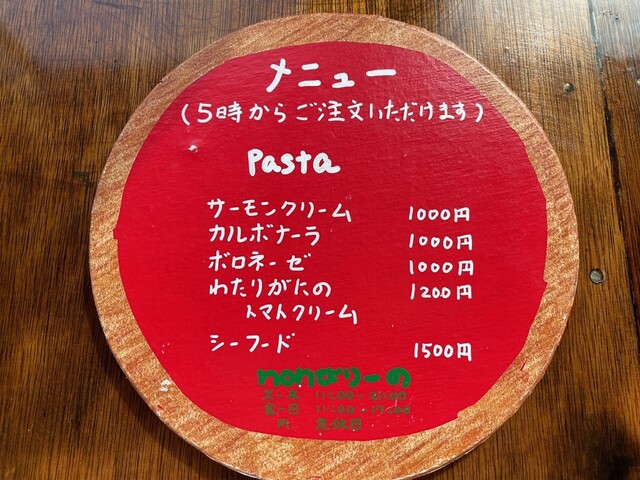 メニュー
(5時からご注文いただけます)
Pasta
サーモンクリーム 1000円
カルボナーラ 1000円
ボロネーゼ 1000円
わたりがにの 1200円
トマトクリーム
シーフード 1500円
nonなりーの
火-木 11:00-
金-日 11:00-
月 定休日